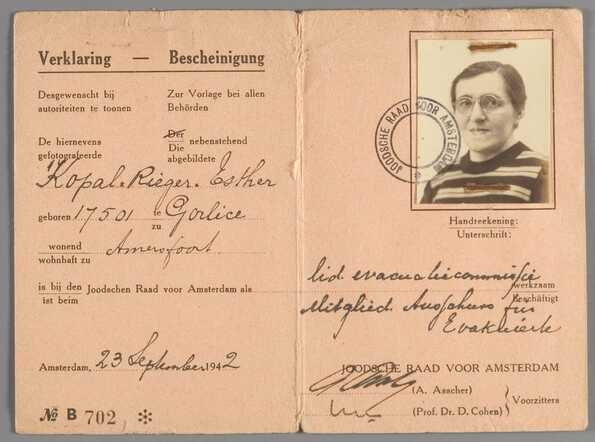 Verklaring — Bescheinigung
Desgewenscht bij
autoriteiten te toonen
Zur Vorlage bei allen
Behörden
De hiernevens
gefotografeerde
Der nebenstehend
Die
abgebildete
Kopal-Rieger. Esther
geboren 17501 te Gorlice
zu
wonend
wohnhaft zu
Amersfoort
is bij den Joodschen Raad voor Amsterdam als
ist beim
Amsterdam, 23 September 1942
№ B 702, ✻
JOODSCHE RAAD VOOR AMSTERDAM
Handteekening:
Unterschrift:
lid evacuatiecommissie
werkzaam
Mitglied Ausschuss für
beschäftigt
Evakuierte
JOODSCHE RAAD VOOR AMSTERDAM
(A. Asscher)
(Prof. Dr. D. Cohen)
Voorzitters